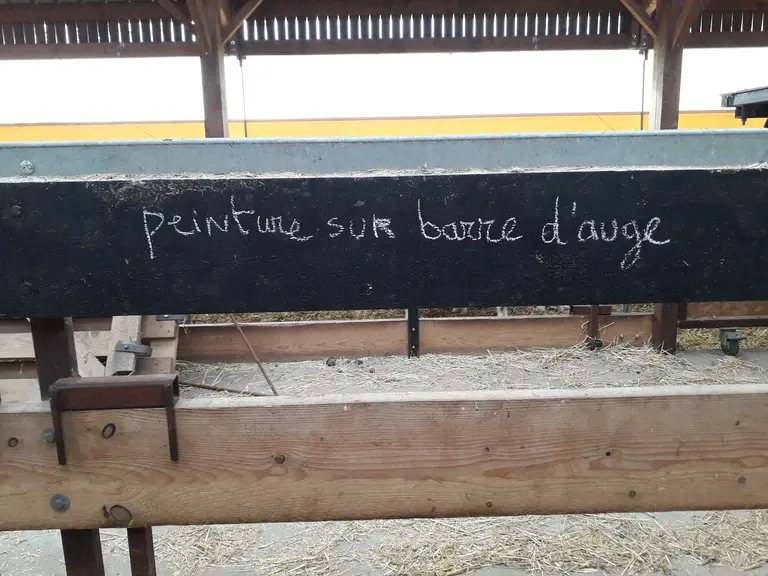 peinture sur barre d'auge